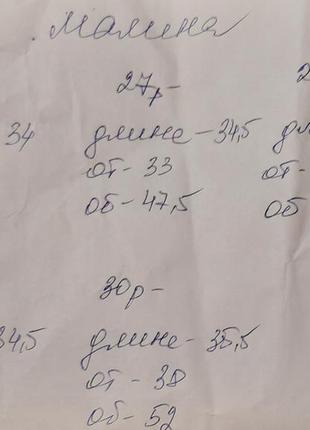 Малина
27р-
34 длине-34,5
от-33 от-
об-47,5 об
30р-
34,5 длине-35,5
от-38
об-52